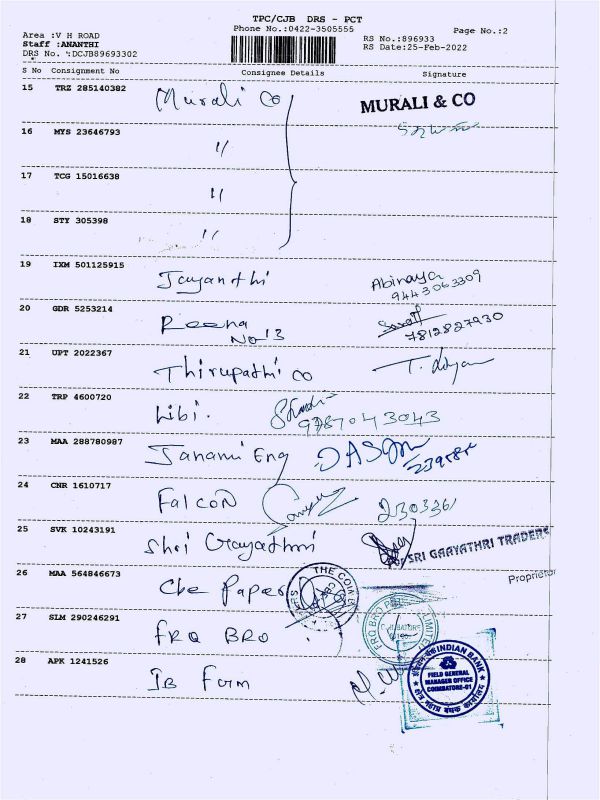 TPC/CJB DRS - PCT
Phone No.:0422-3505555
Page No.:2
Area :V H ROAD
Staff :ANANTHI
DRS No. :DCJB89693302
RS No.:896933
RS Date:25-Feb-2022
S No Consignment No Consignee Details Signature
15 TRZ 285140382 Murali Co MURALI & CO
16 MYS 23646793 "
17 TCG 15016638 "
18 STY 305398 "
19 IXM 501125915 Jayanthi Abinaya
9443063309
20 GDR 5253214 Reena
No 13 7812827930
21 UPT 2022367 Thirupathi Co
22 TRP 4600720 Libi. 9787043043
23 MAA 288780987 Janani Eng
24 CNR 1610717 Falcon
25 SVK 10243191 Shri Gayathri For SRI GAAYATHRI TRADERS
Proprietor
26 MAA 564846673 Cbe Paper THE COIM
27 SLM 290246291 FRQ BRO FRQ BRO LIMITED
28 APK 1241526 IB Form
INDIAN BANK
FIELD GENERAL
MANAGER OFFICE
COIMBATORE-01